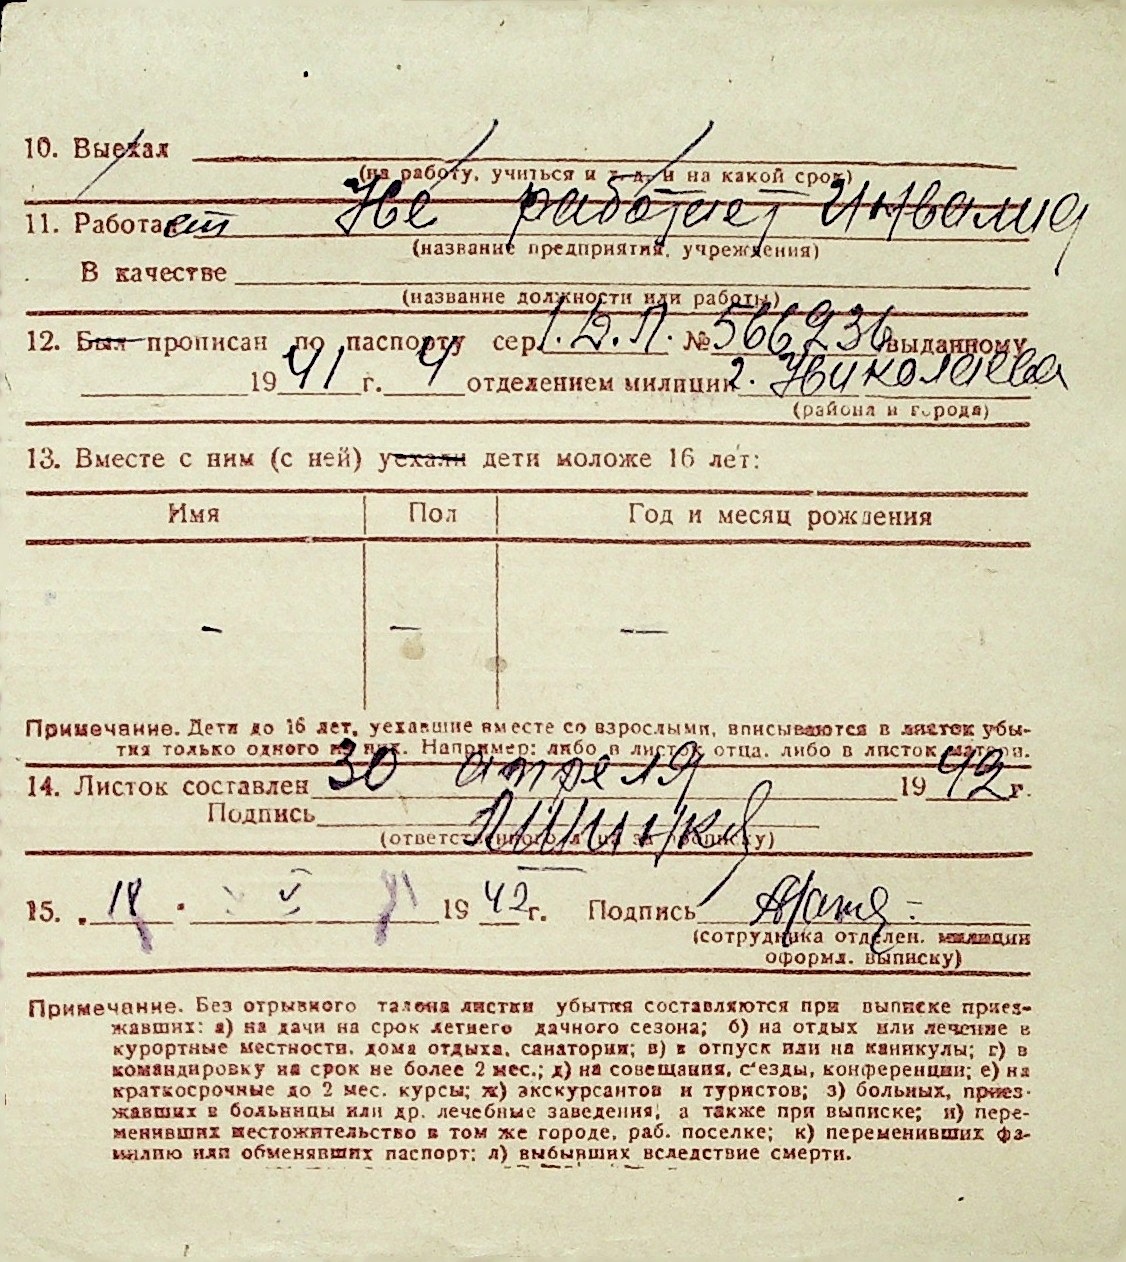 10. Выехал
(на работу, учиться и т. д. и на какой срок)
11. Работает Не работает Инвалид
(название предприятия, учреждения)
В качестве
(название должности или работы)
12. Был прописан по паспорту сер. № 566236 выданному
1941 г. 4 отделением милиции г. Николаева
(района и города)
13. Вместе с ним (с ней) уехали дети моложе 16 лет:
Имя Пол Год и месяц рождения
— — —
Примечание. Дети до 16 лет, уехавшие вместе со взрослыми, вписываются в листок убы-
тия только одного из них. Например: либо в листок отца, либо в листок матери.
14. Листок составлен 30 апреля 1942 г.
Подпись
(ответственного лица за прописку)
15. 18 V 1942 г. Подпись
(сотрудника отделен. милиции
оформл. выписку)
Примечание. Без отрывного талона листки убытия составляются при выписке приез-
жавших: а) на дачи на срок летнего дачного сезона; б) на отдых или лечение в
курортные местности, дома отдыха, санатории; в) в отпуск или на каникулы; г) в
командировку на срок не более 2 мес.; д) на совещания, с'езды, конференции; е) на
краткосрочные до 2 мес. курсы; ж) экскурсантов и туристов; з) больных, приез-
жавших в больницы или др. лечебные заведения, а также при выписке; и) пере-
менивших местожительство в том же городе, раб. поселке; к) переменивших фа-
милию или обменявших паспорт; л) выбывших вследствие смерти.